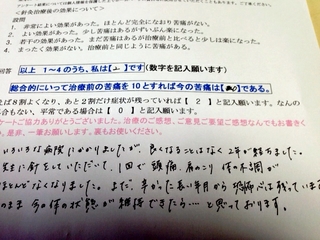 <針灸治療後の効果について>
設問
1. 非常によい効果があった。ほとんど完全になおり苦痛がない。
2. よい効果があった。少し苦痛はあるがずいぶん楽になった。
3. 若干の効果があった。まだ苦痛はあるが治療前と比べると少しは楽になった。
4. まったく効果がない。治療前と同じように苦痛がある。
回答 以上 1～4のうち、私は【2】です(数字を記入願います)
総合的にいって治療前の苦痛を10とすれば今の苦痛は【】である。
えば8割よくなり、あと2割だけ症状が残っていれば【 2 】と記入願います。なんの
もない、平常である場合は【 0 】と記入願います。
ケートご協力ありがとうございました。治療のご感想、ご意見ご要望ご感想なんでもお書きく
、是非、一筆お願いします。裏もお使いください。
いろいろな病院にかかりましたが、良くなることはなく2年が経ちました。
先生に針をしていただいて、1回で頭痛、肩のこり、体の不調が
ほとんどなくなりました。まだ、辛かった長い年月から恐怖心は残っていま
のまま今の体の状態が維持できたら…と思っております。